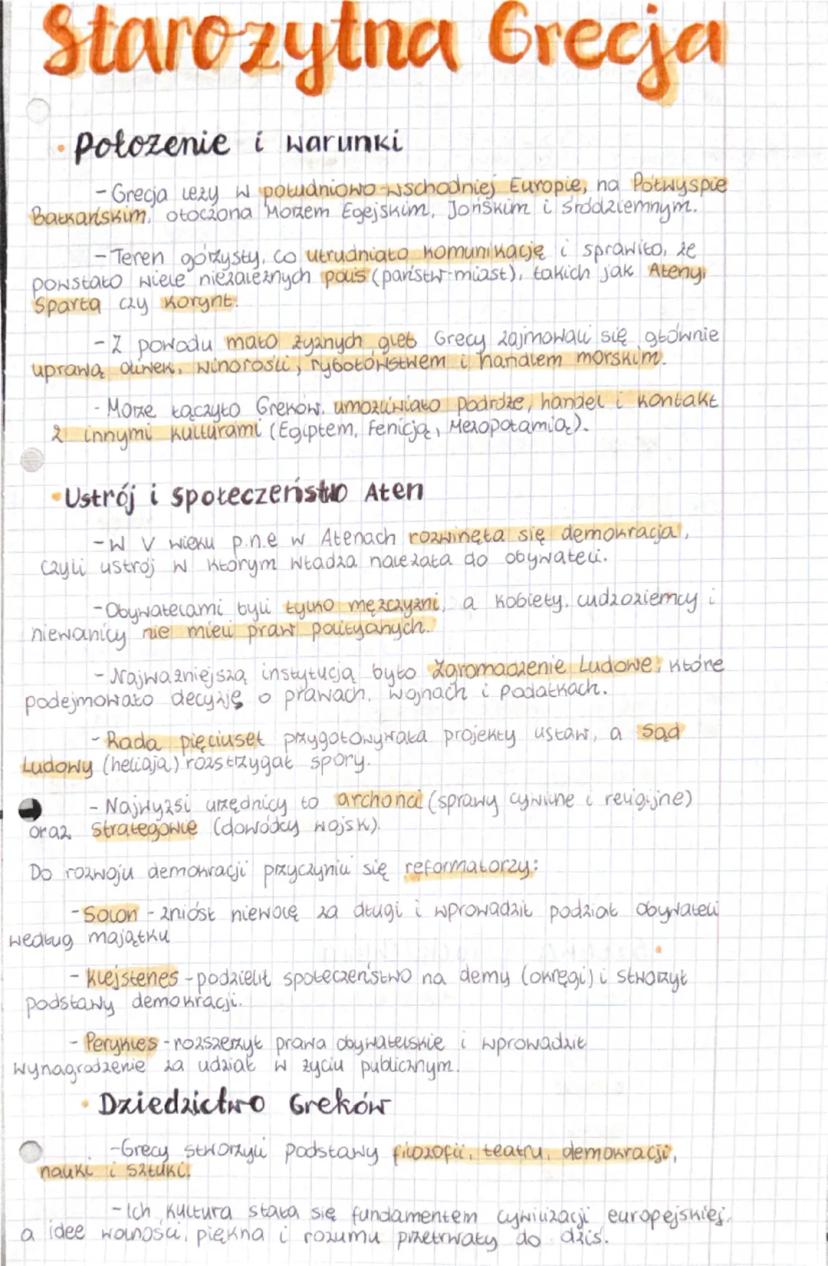 Starożytna Grecja
• Położenie i warunki
- Grecja leży w południowo-wschodniej Europie, na Półwyspie
Bałkańskim, otoczona Morzem Egejskim, Jońskim i Śródziemnym.
- Teren górzysty, co utrudniało komunikację i sprawiło, że
powstało wiele niezależnych polis (państw-miast), takich jak Ateny,
Sparta czy Korynt.
- Z powodu mało żyznych gleb Grecy zajmowali się głównie
uprawą oliwek, winorośli, rybołówstwem i handlem morskim.
- Morze łączyło Greków, umożliwiało podróże, handel i kontakt
z innymi kulturami (Egiptem, Fenicją, Mezopotamią).
• Ustrój i społeczeństwo Aten
- W V wieku p.n.e w Atenach rozwinęła się demokracja,
czyli ustrój w którym władza należała do obywateli.
- Obywatelami byli tylko mężczyźni, a kobiety, cudzoziemcy i
niewolnicy nie mieli praw politycznych.
- Najważniejszą instytucją było Zgromadzenie Ludowe, które
podejmowało decyzje o prawach, wojnach i podatkach.
- Rada pięciuset przygotowywała projekty ustaw, a Sąd
Ludowy (heliaja) rozstrzygał spory.
- Najwyżsi urzędnicy to archonci (sprawy cywilne i religijne)
oraz strategowie (dowódcy wojsk).
Do rozwoju demokracji przyczynili się reformatorzy:
- Solon - zniósł niewolę za długi i wprowadził podział obywateli
według majątku
- Klejstenes - podzielił społeczeństwo na demy (okręgi) i stworzył
podstawy demokracji.
- Perykles - rozszerzył prawa obywatelskie i wprowadził
wynagrodzenie za udział w życiu publicznym.
• Dziedzictwo Greków
- Grecy stworzyli podstawy filozofii, teatru, demokracji,
nauki i sztuki.
- Ich kultura stała się fundamentem cywilizacji europejskiej,
a idee wolności, piękna i rozumu przetrwały do dziś.